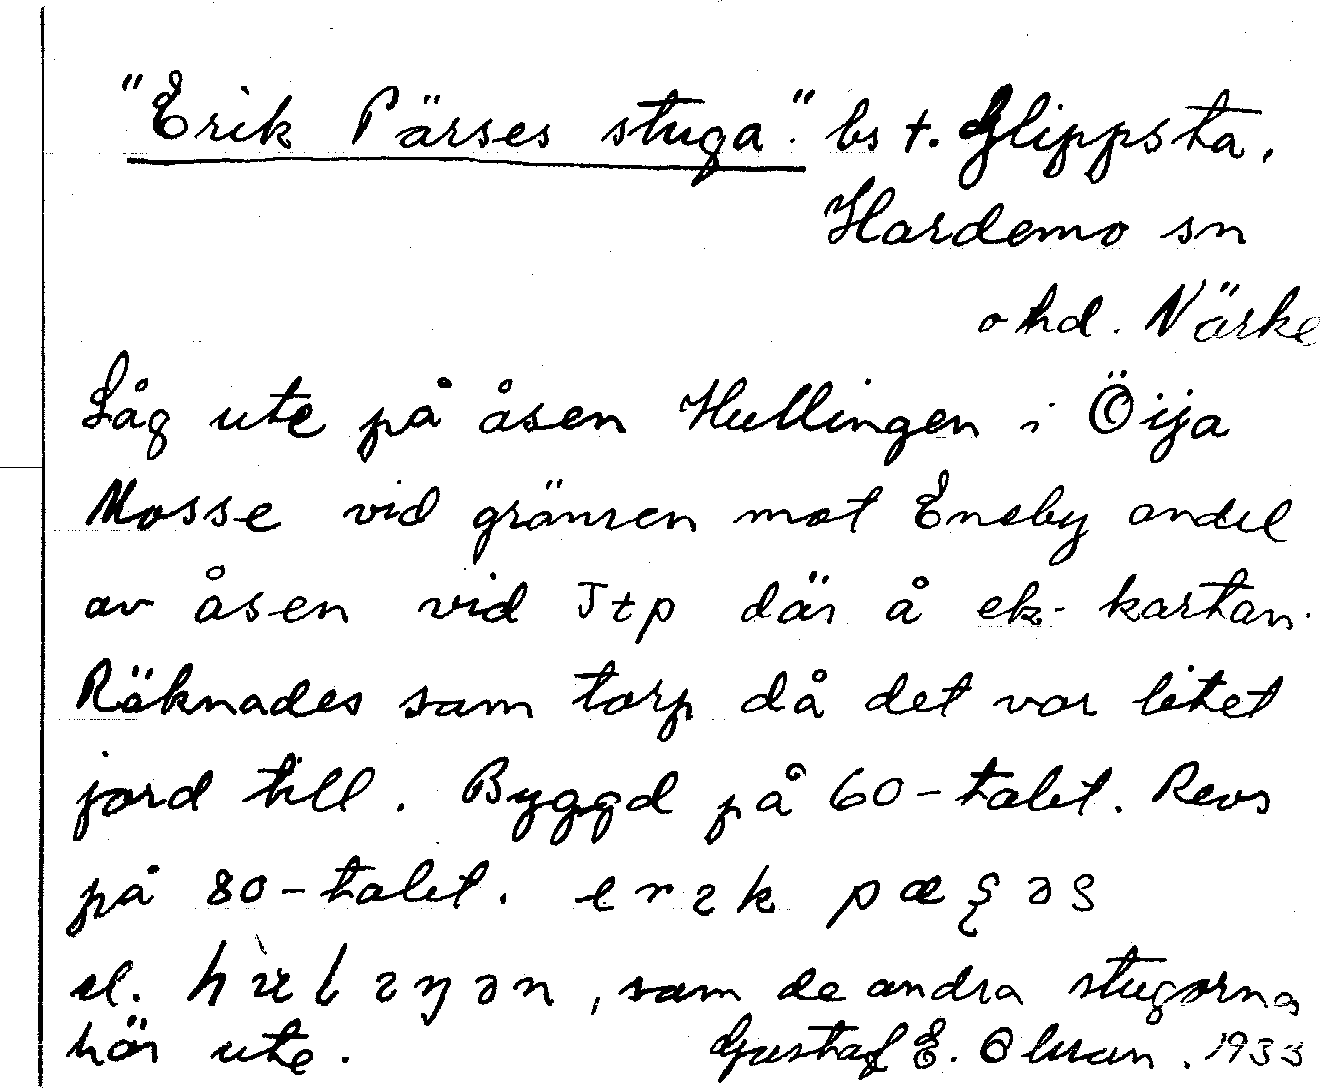 "Erik Pärses stuga". bs t. Glippsta,
Hardemo sn
o hd. Närke
Låg ute på åsen Hullingen i Öija
Mosse vid gränsen mot Eneby andel
av åsen vid Jtp där å ek-kartan.
Räknades som torp då det var litet
jord till. Byggd på 60-talet. Revs
på 80-talet.
el. , som de andra stugorna
här ute. Gustaf E. Olsson. 1933